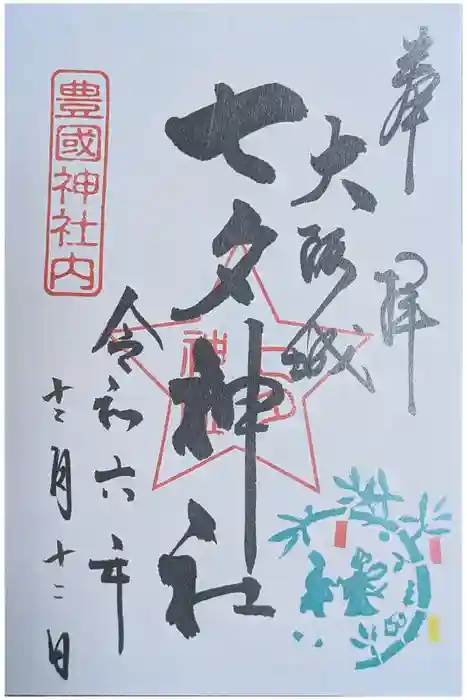 奉拝
大阪城
七夕神社
令和六年
十二月十二日
豊國神社内